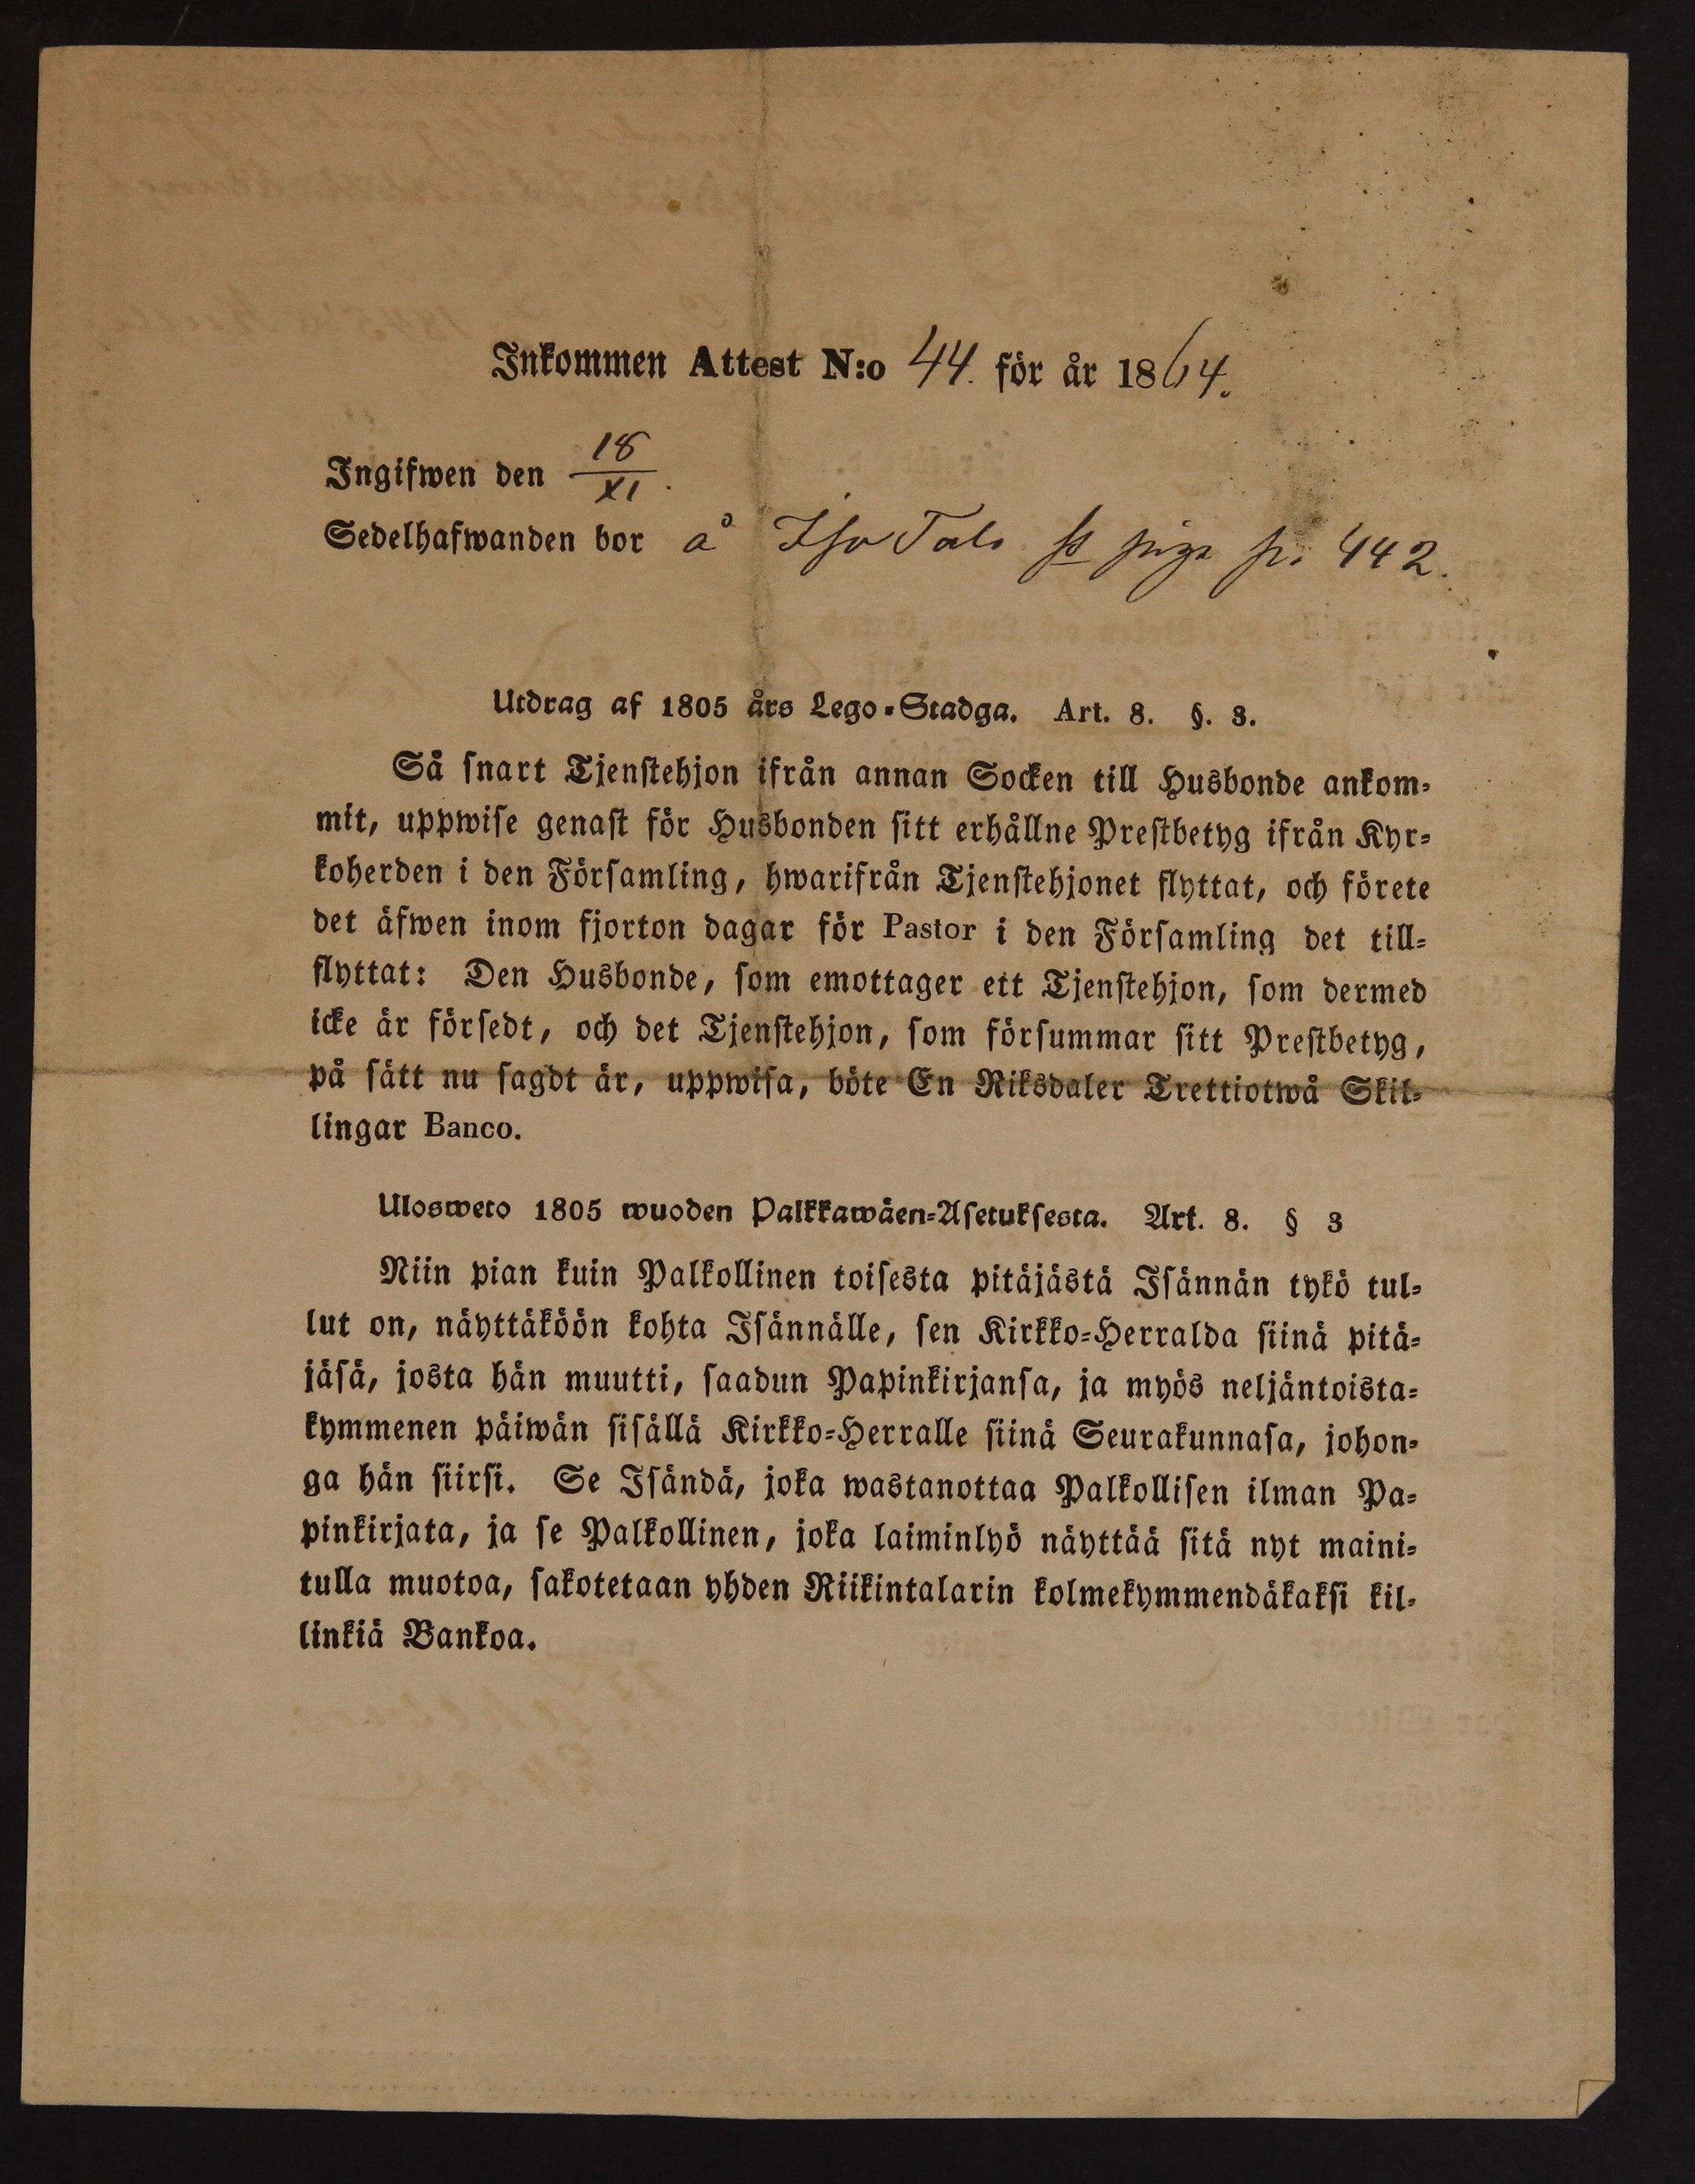 Inkommen Attest N:o 44. för år 1864.
Ingifwen den 18/XI.
Sedelhafwanden bor å Iso Talo piga 442.
Utdrag af 1805 års Lego-Stadga. Art. 8. §. 3.
Så snart Tjenstehjon ifrån annan Socken till Husbonde ankom-
mit, uppwise genast för Husbonden sitt erhållne Prestbetyg ifrån Kyr-
koherden i den Församling, hwarifrån Tjenstehjonet flyttat, och förete
det äfwen inom fjorton dagar för Pastor i den Församling det till-
flyttat: Den Husbonde, som emottager ett Tjenstehjon, som dermed
icke är försedt, och det Tjenstehjon, som försummar sitt Prestbetyg,
på sätt nu sagdt är, uppwisa, böte En Riksdaler Trettiotwå Skil-
lingar Banco.
Ulosweto 1805 wuoden Palkkawäen-Asetuksesta. Art. 8. § 3
Niin pian kuin Palkollinen toisesta pitäjästä Isännän tykö tul-
lut on, näyttäköön kohta Isännälle, sen Kirkko-Herralda siinä pitä-
jäsä, josta hän muutti, saadun Papinkirjansa, ja myös neljäntoista-
kymmenen päiwän sisällä Kirkko-Herralle siinä Seurakunnasa, johon-
ga hän siirsi. Se Isändä, joka wastanottaa Palkollisen ilman Pa-
pinkirjata, ja se Palkollinen, joka laiminlyö näyttää sitä nyt maini-
tulla muotoa, sakotetaan yhden Riikintalarin kolmekymmendäkaksi kil-
linkiä Bankoa.